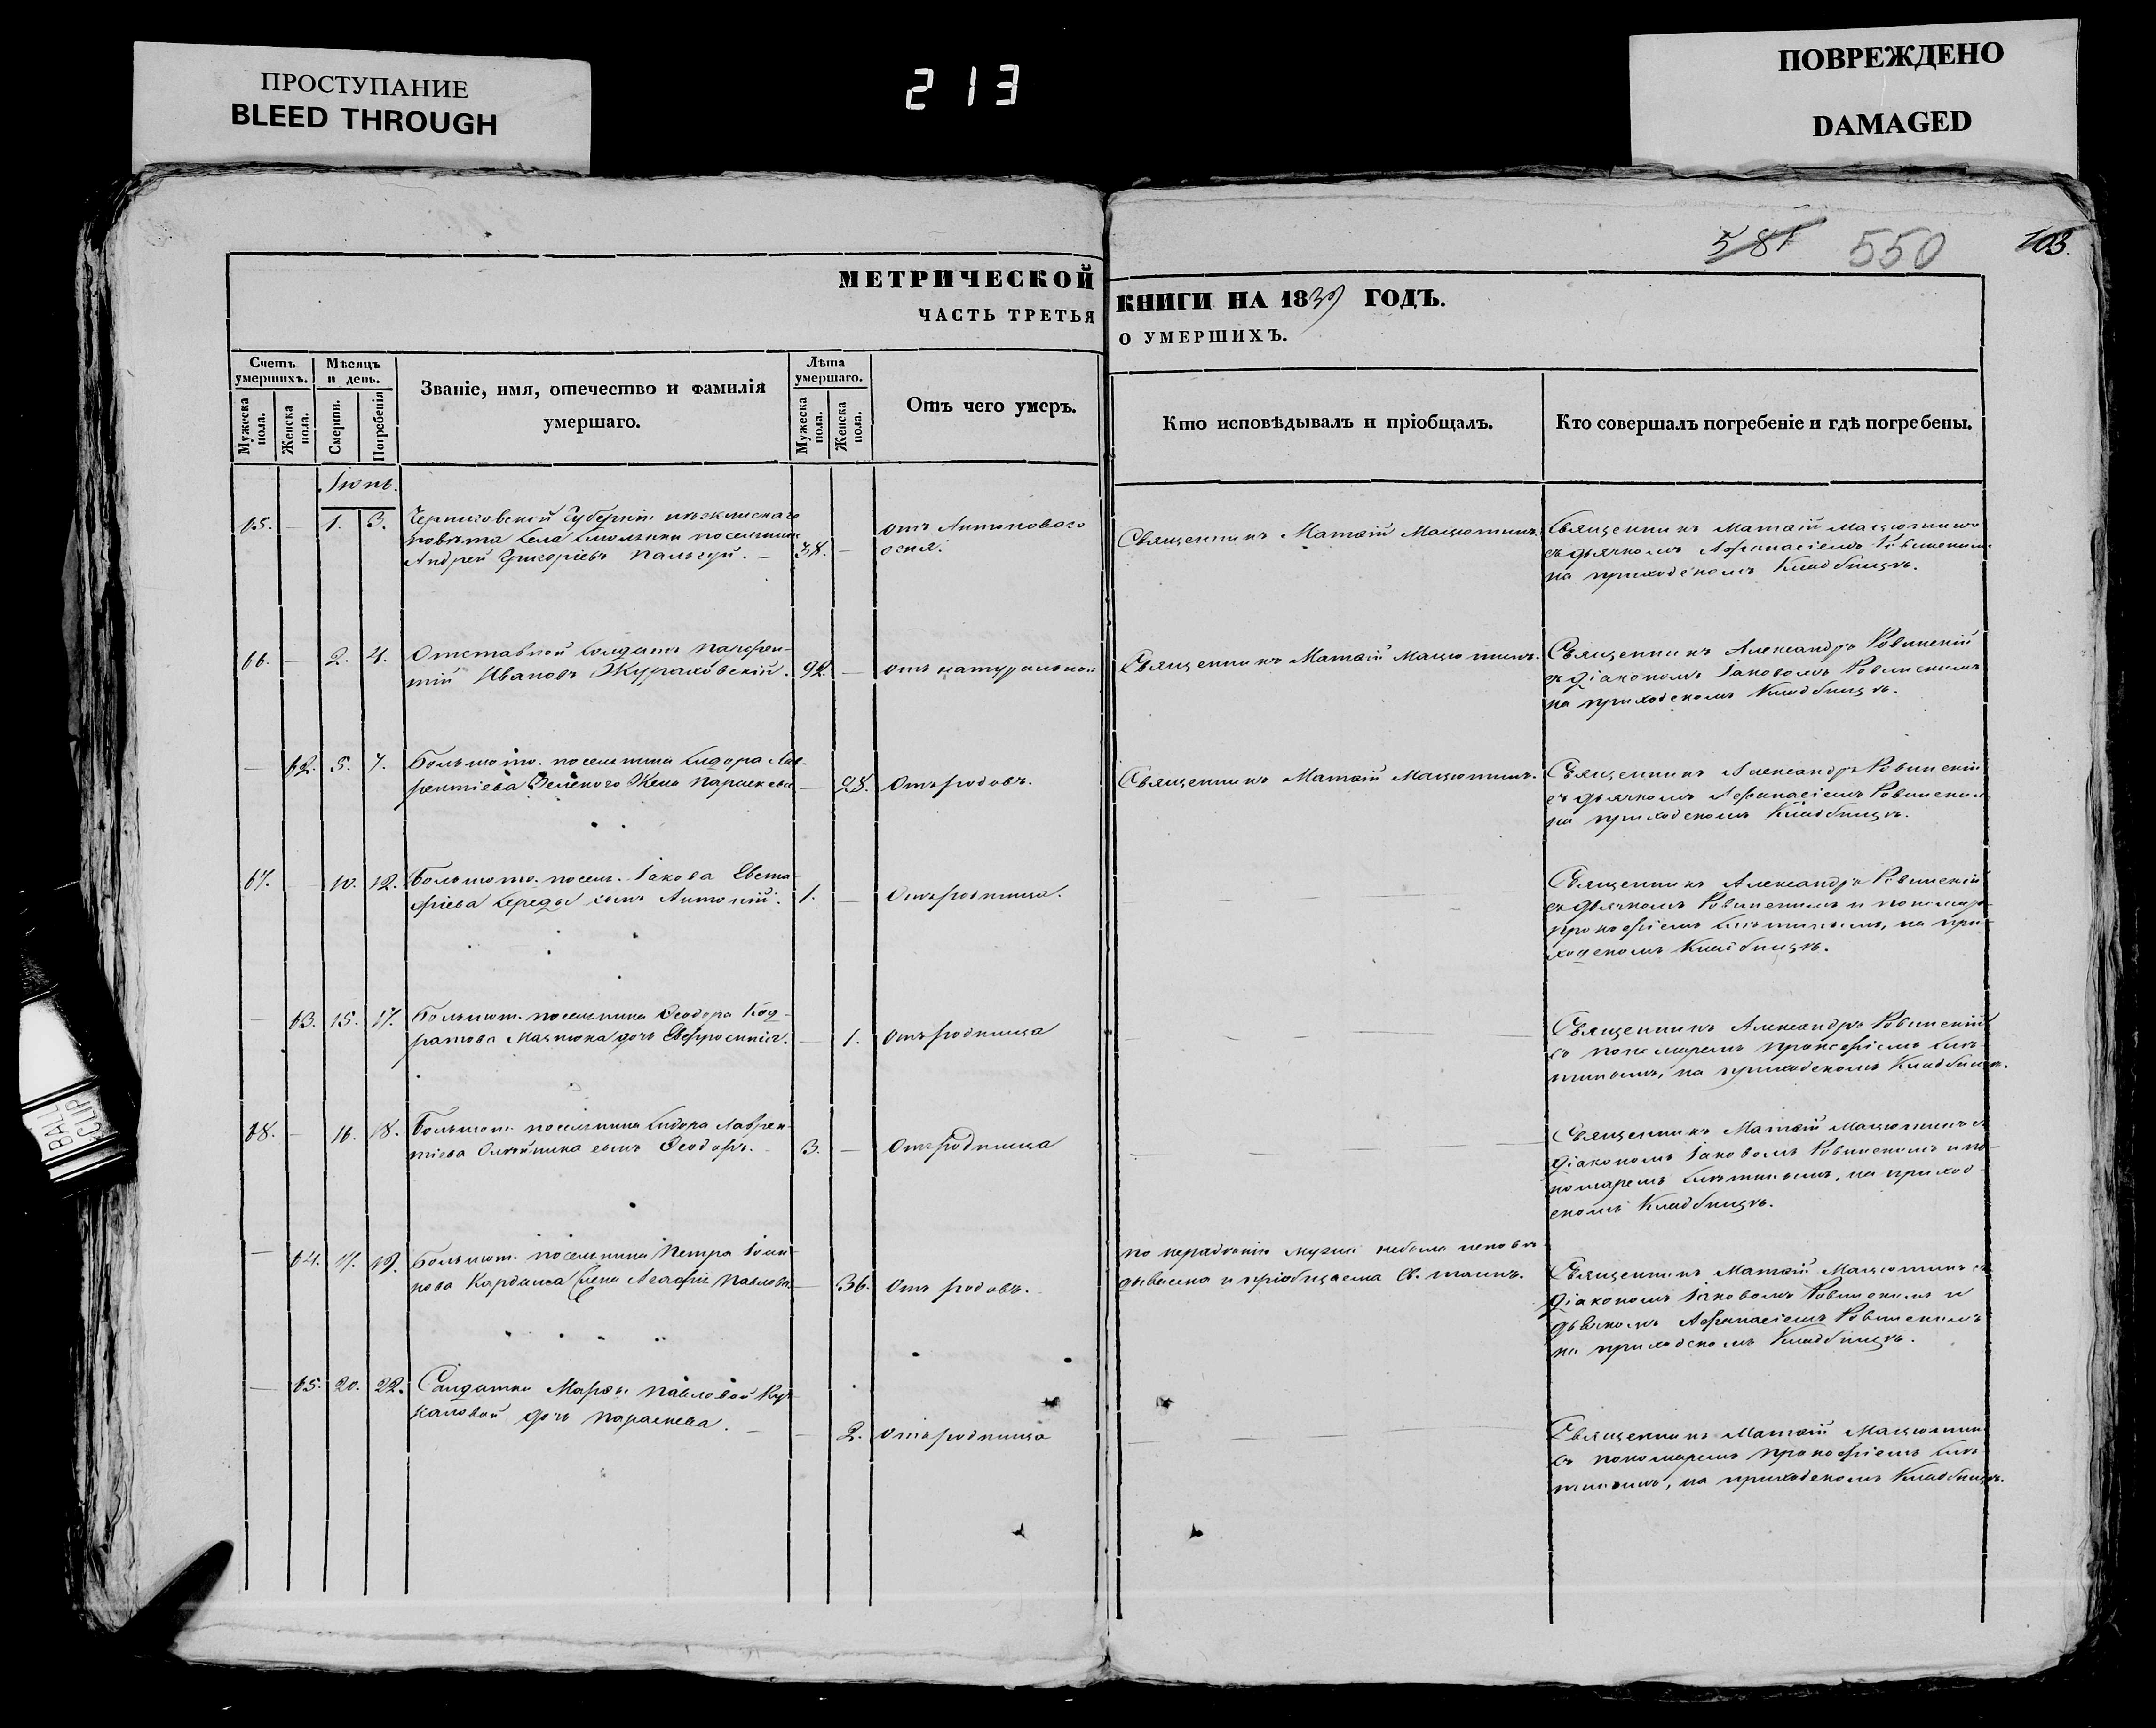 ПРОСТУПАНИЕ
BLEED THROUGH
213
ПОВРЕЖДЕНО
DAMAGED
581 550 103.
МЕТРИЧЕСКОЙ КНИГИ НА 1839 ГОДЪ.
ЧАСТЬ ТРЕТЬЯ О УМЕРШИХЪ.
Счетъ умершихъ.
Мужеска пола.
Женска пола.
Мѣсяцъ и день.
Смерти.
Погребенія
Званіе, имя, отечество и фамилія умершаго.
Лѣта умершаго.
Мужеска пола.
Женска пола.
Отъ чего умеръ.
Кто исповѣдывалъ и пріобщалъ.
Кто совершалъ погребеніе и гдѣ погребены.
Іюнь.
65. — 1. 3.
Черниговской Губерніи
повѣта села поселянинъ
Андрей Григоріевъ
38. —
отъ Антоноваго
огня.
Священникъ Матѳій
Священникъ Матѳій
съ дьячкомъ Афанасіемъ Ровинскимъ
на приходскомъ Кладбищѣ.
66. — 2. 4.
Отставной солдатъ Парфен-
тій Ивановъ Жураховскій.
92. —
отъ натуральной
Священникъ Матѳій
Священникъ Александръ Ровинскій
съ діакономъ Іаковомъ Ровинскимъ
на приходскомъ Кладбищѣ.
— 62. 5. 7.
поселянина Сидора Лав-
рентіева Зеленого Жена Параскева
— 28.
Отъ родовъ.
Священникъ Матѳій
Священникъ Александръ Ровинскій
съ дьячкомъ Афанасіемъ Ровинским
на приходскомъ Кладбищѣ.
67. — 10. 12.
посел. Іакова Евста-
фіева Середы сынъ Антоній.
1. —
Отъ родимца.
Священникъ Александръ Ровинскій
съ дьячкомъ Ровинскимъ и пономар.
Прокофіемъ на при-
ходскомъ Кладбищѣ.
— 63. 15. 17.
поселянина Ѳеодора Код-
ратова дочь Евфросинія.
— 1.
Отъ родимца
Священникъ Александръ Ровинскій
съ пономаремъ Прокофіемъ
на приходскомъ Кладбищѣ.
68. — 16. 18.
поселянина Сидора Лаврен-
тіева Олѣйника сынъ Ѳеодоръ.
3. —
Отъ родимца
Священникъ Матѳій
діакономъ Іаковомъ Ровинскимъ и по-
номаремъ на приход-
скомъ Кладбищѣ.
— 64. 17. 19.
поселянина Петра Іоан-
нова Кардаша жена Агафія Павлова
— 36.
Отъ родовъ.
по нерадѣнію мужа небыла исповѣ-
дывана и пріобщаема Св. таинъ.
Священникъ Матѳій
діакономъ Іаковомъ Ровинскимъ и
дьячкомъ Афанасіемъ Ровинскимъ
на приходскомъ Кладбищѣ.
— 65. 20. 22.
Солдатки Марѳы Павловой
дочь Параскева.
— 2.
Отъ родимца
Священникъ Матѳій
съ пономаремъ Прокофіемъ
на приходскомъ Кладбищѣ.
BALL
CLIP